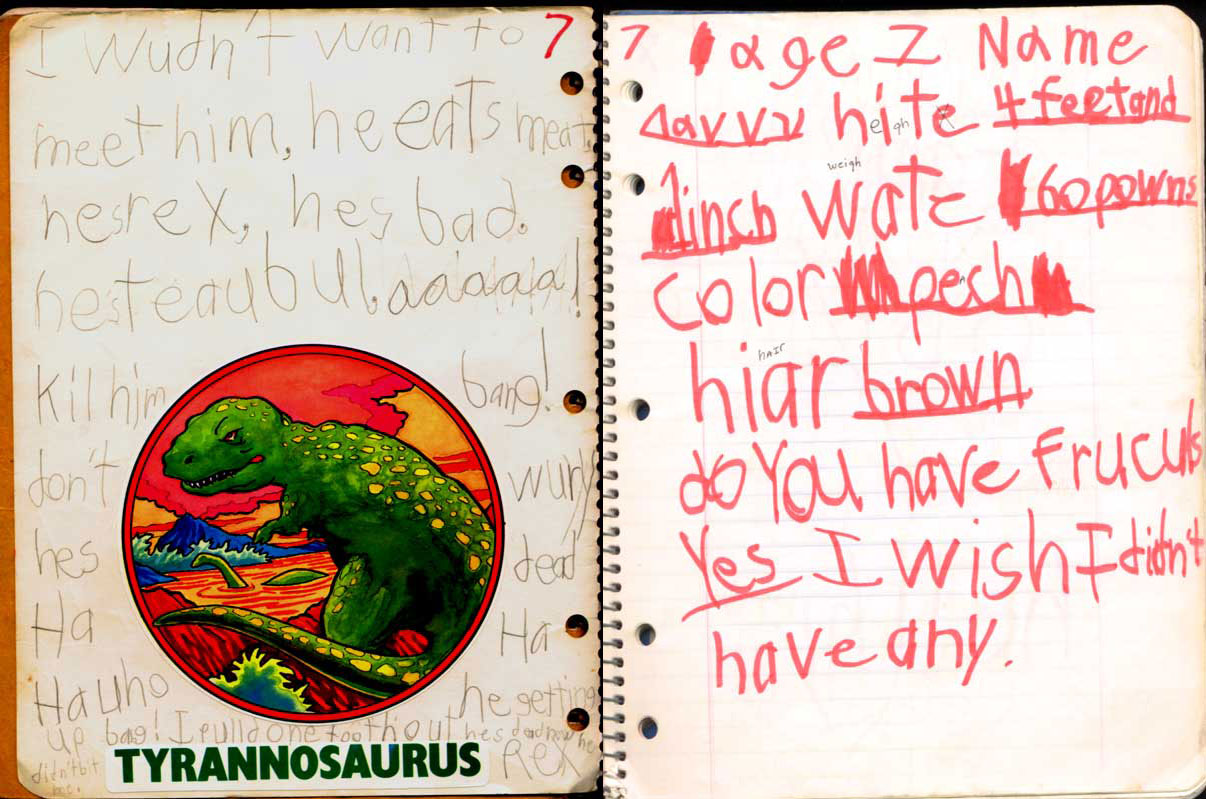 I wudn't want to 7
meet him, he eats meat.
hesrex, hes bad.
hesteaubul. aaaaaa!
Kill him bang!
don't wury
hes dead
Ha Ha
Ha uho he getting
up bag! I pulld one tooth out hes dead now he
didn't bit me. TYRANNOSAURUS REX
7 age 7 Name
Larry hite 4 feet and
eigh
weigh
1 inch wate 60 powns
color pech
a
hAIR
hiar brown
do You have Fruculs
Yes I wish I didn't
have any.